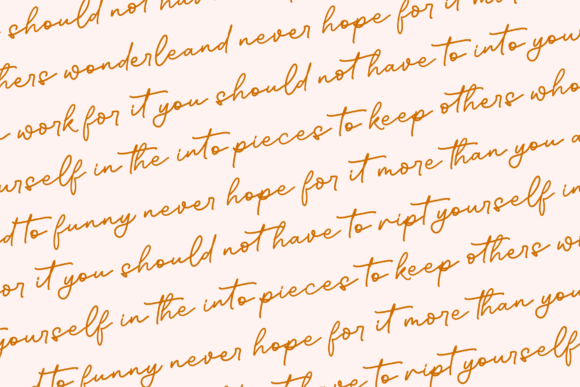 should not have
others wonderleand never hope for it more
work for it you should not have to into your
yourself in the into pieces to keep others who
d to funny never hope for it more than you a
for it you should not have to ript yourself in
yourself in the into pieces to keep others wi
d to funny never hope for it more than you
to ript yourself